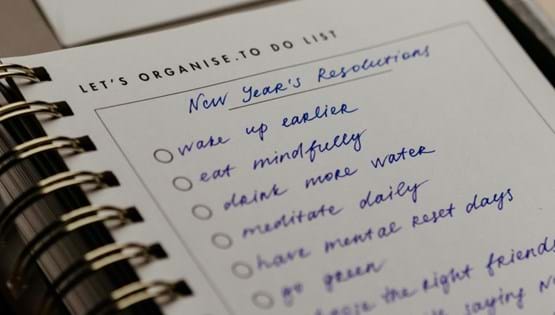 LET'S ORGANISE.TO DO LIST
New Year's Resolutions
wake up earlier
eat mindfully
drink more water
meditate daily
have mental reset days
go green
the right friends
saying